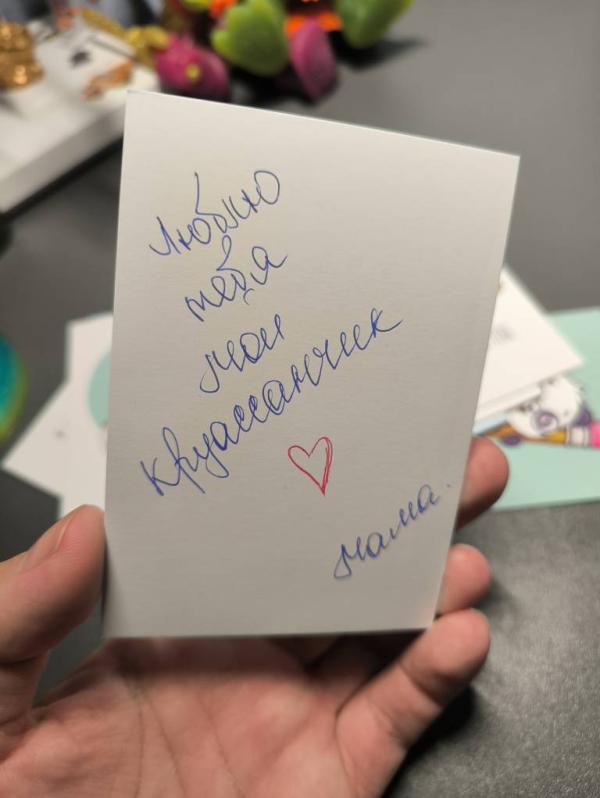 Люблю
тебя
мой
круассанчик
мама.